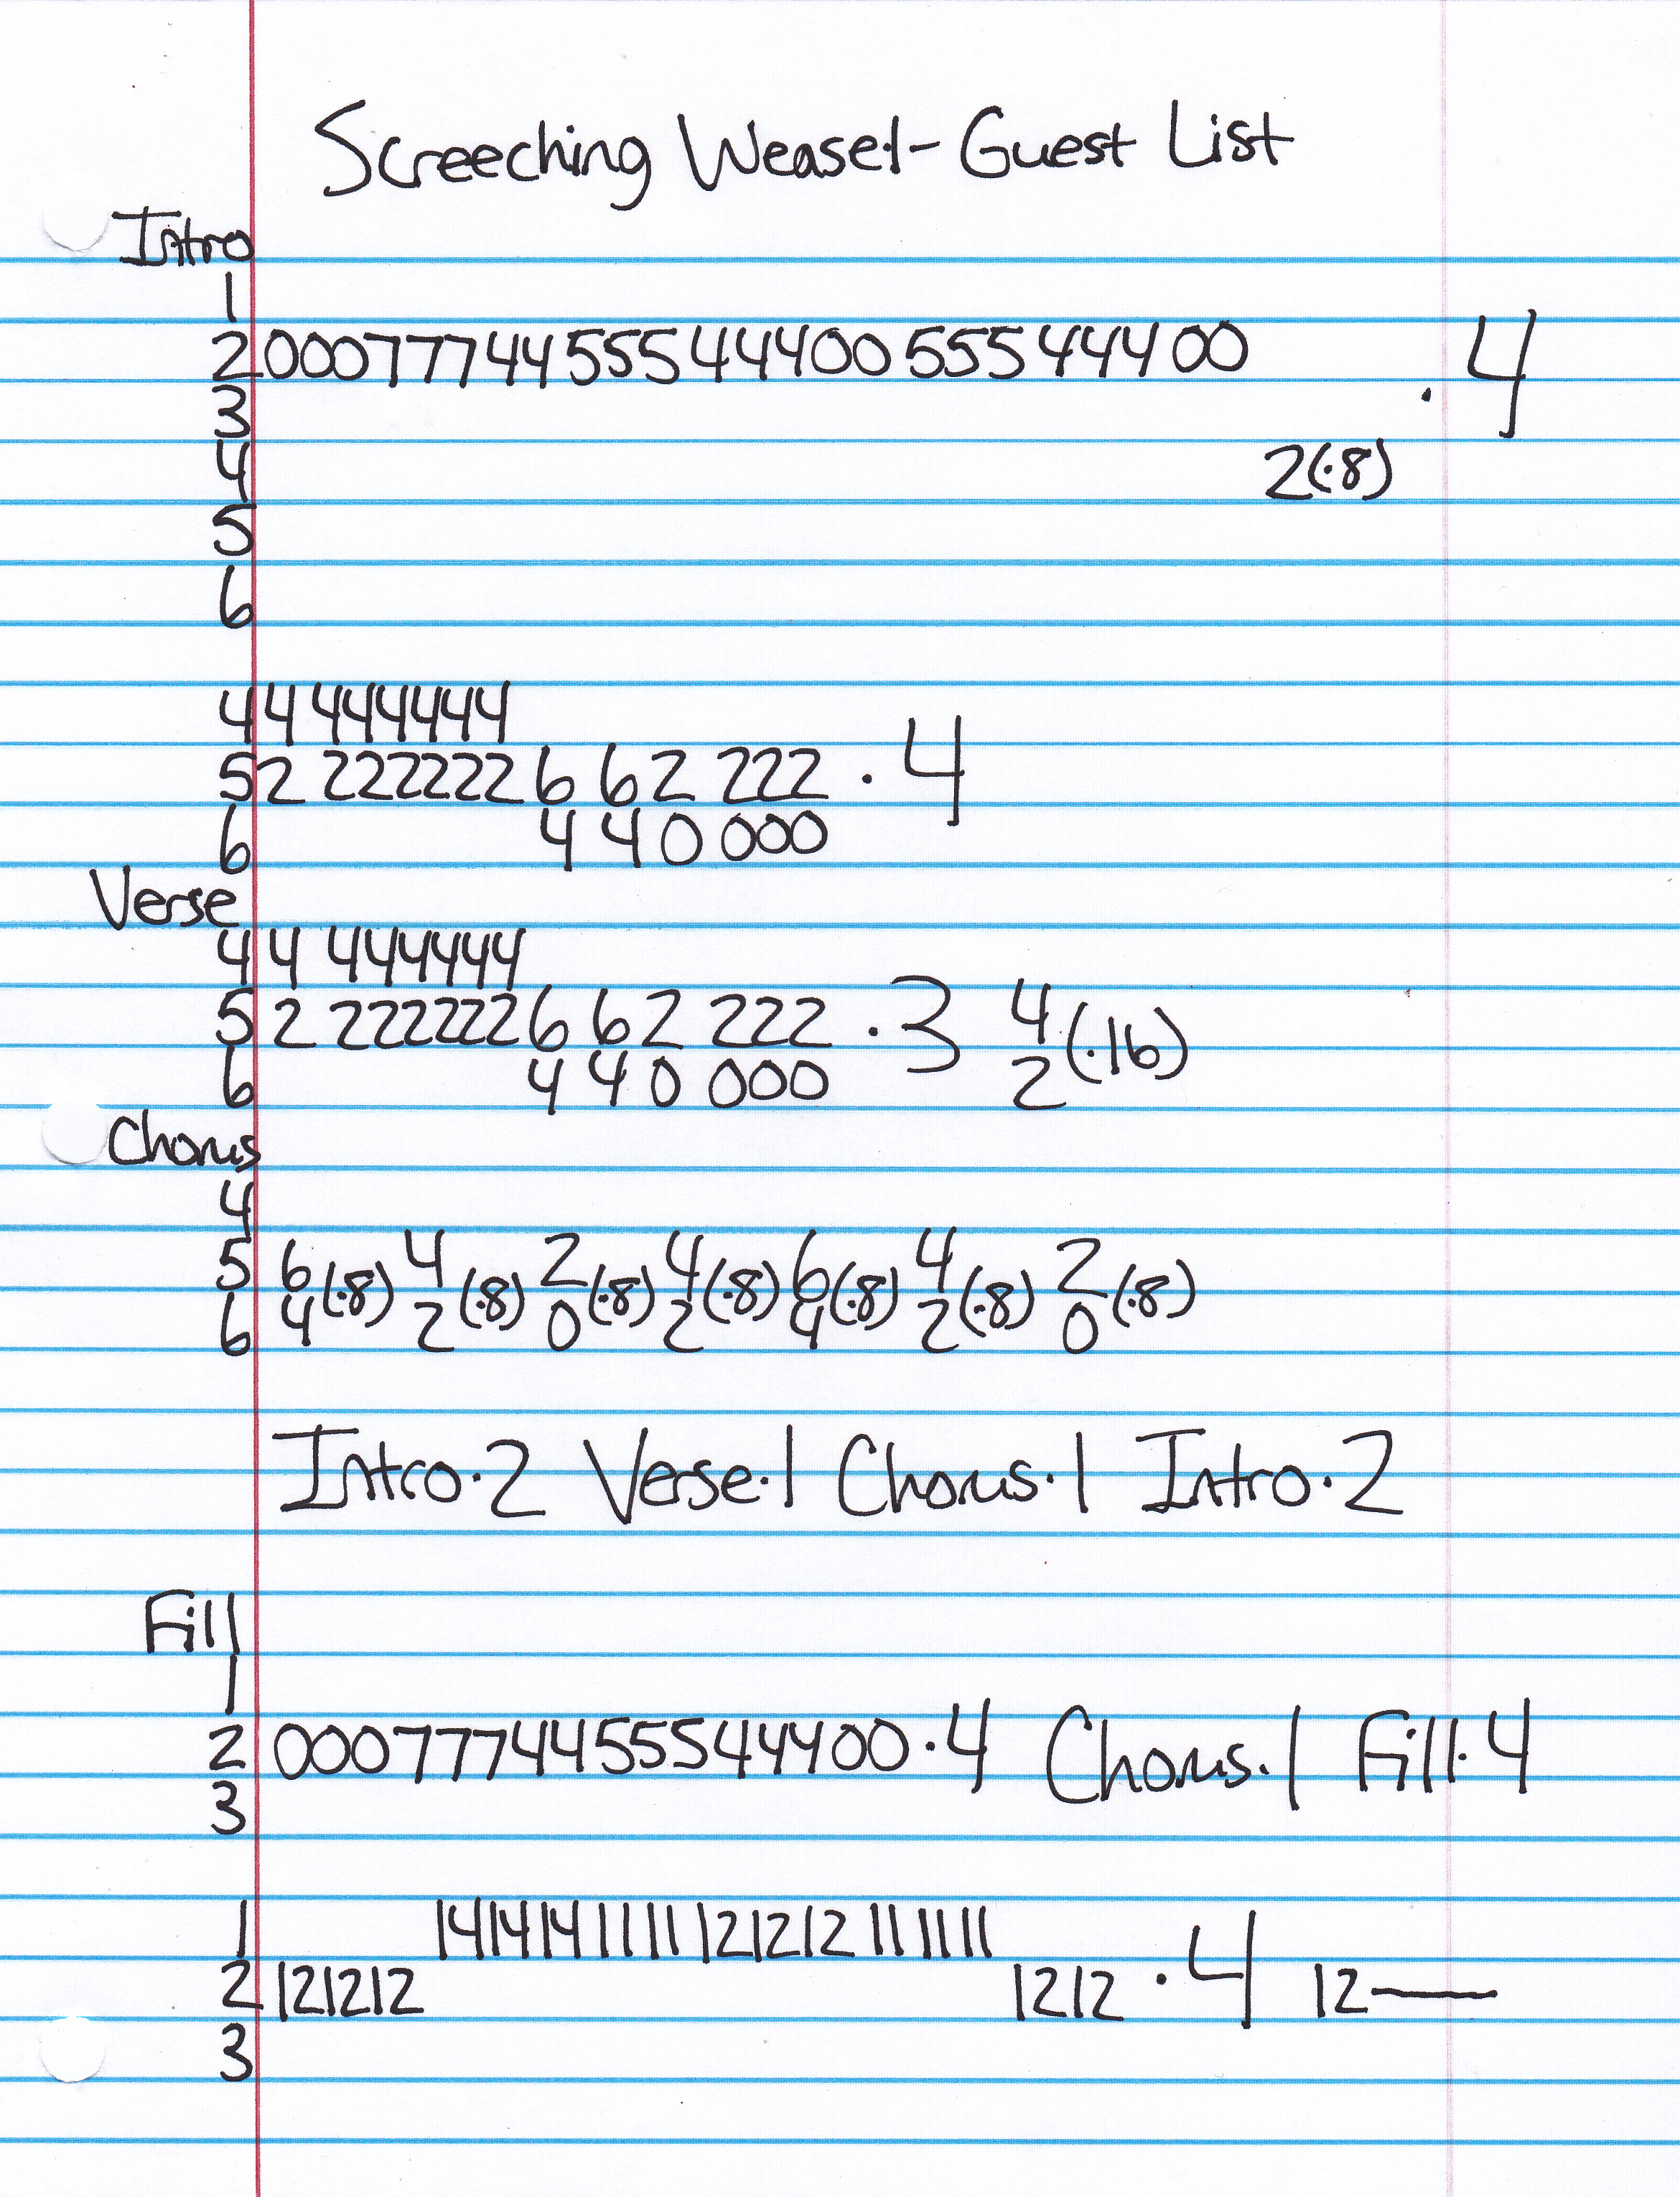 Screeching Weasel - Guest List
Intro
1
2 000777445554440055544400 · 4
3
4 2(·8)
5
6
4 44444444
5 2 222222 6 6 2 222 · 4
6 4 4 0 000
Verse
4 4 444444
5 2 222222 6 6 2 222 · 3 4/2 (·16)
6 4 4 0 000
Chorus
4
5 6(·8) 4(·8) 2(·8) 4(·8) 6(·8) 4(·8) 2(·8)
6 4 2 0 2 4 2 0
Intro·2 Verse·1 Chorus·1 Intro·2
Fill
1
2 0007774455544400·4 Chorus·1 Fill·4
3
1 141414111111212121111111
2 121212 1212 · 4 12—
3